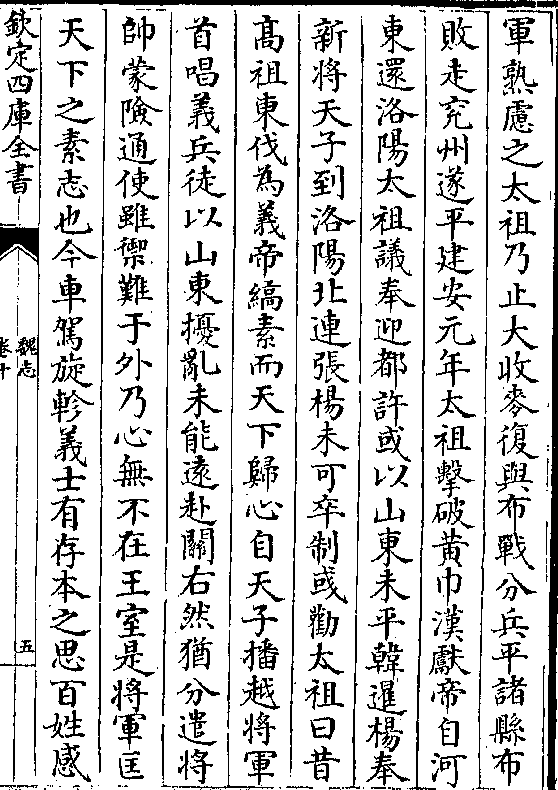 軍熟慮之太祖乃止大收麥復與布戰分兵平諸縣布
敗走兖州遂平建安元年太祖擊破黄巾漢獻帝自河
東還洛陽太祖議奉迎都許或以山東未平韓暹楊奉
新將天子到洛陽北連張楊未可卒制彧勸太祖曰昔
髙祖東伐為義帝縞素而天下歸心自天子播越將軍
首唱義兵徒以山東擾亂未能逺赴關右然猶分遣將
帥蒙險通使雖禦難于外乃心無不在王室是將軍匡
天下之素志也今車駕旋軫義士有存本之思百姓感
欽定四庫全書
魏志
卷十
五